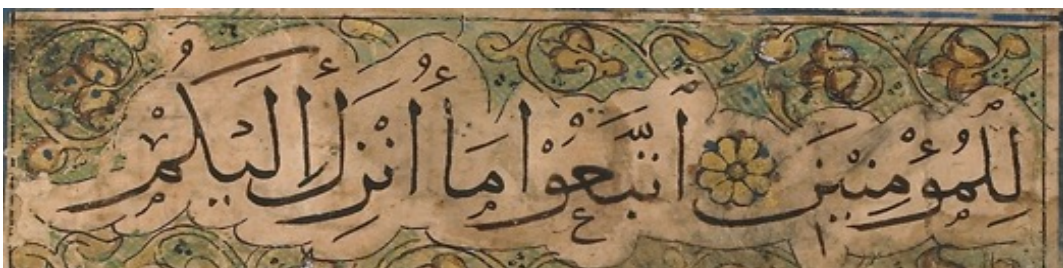 لِلْمُؤْمِنِيْنَ ۝ اتَّبَعُوْا مَا أُنْزِلَ إِلَيْكُمْ